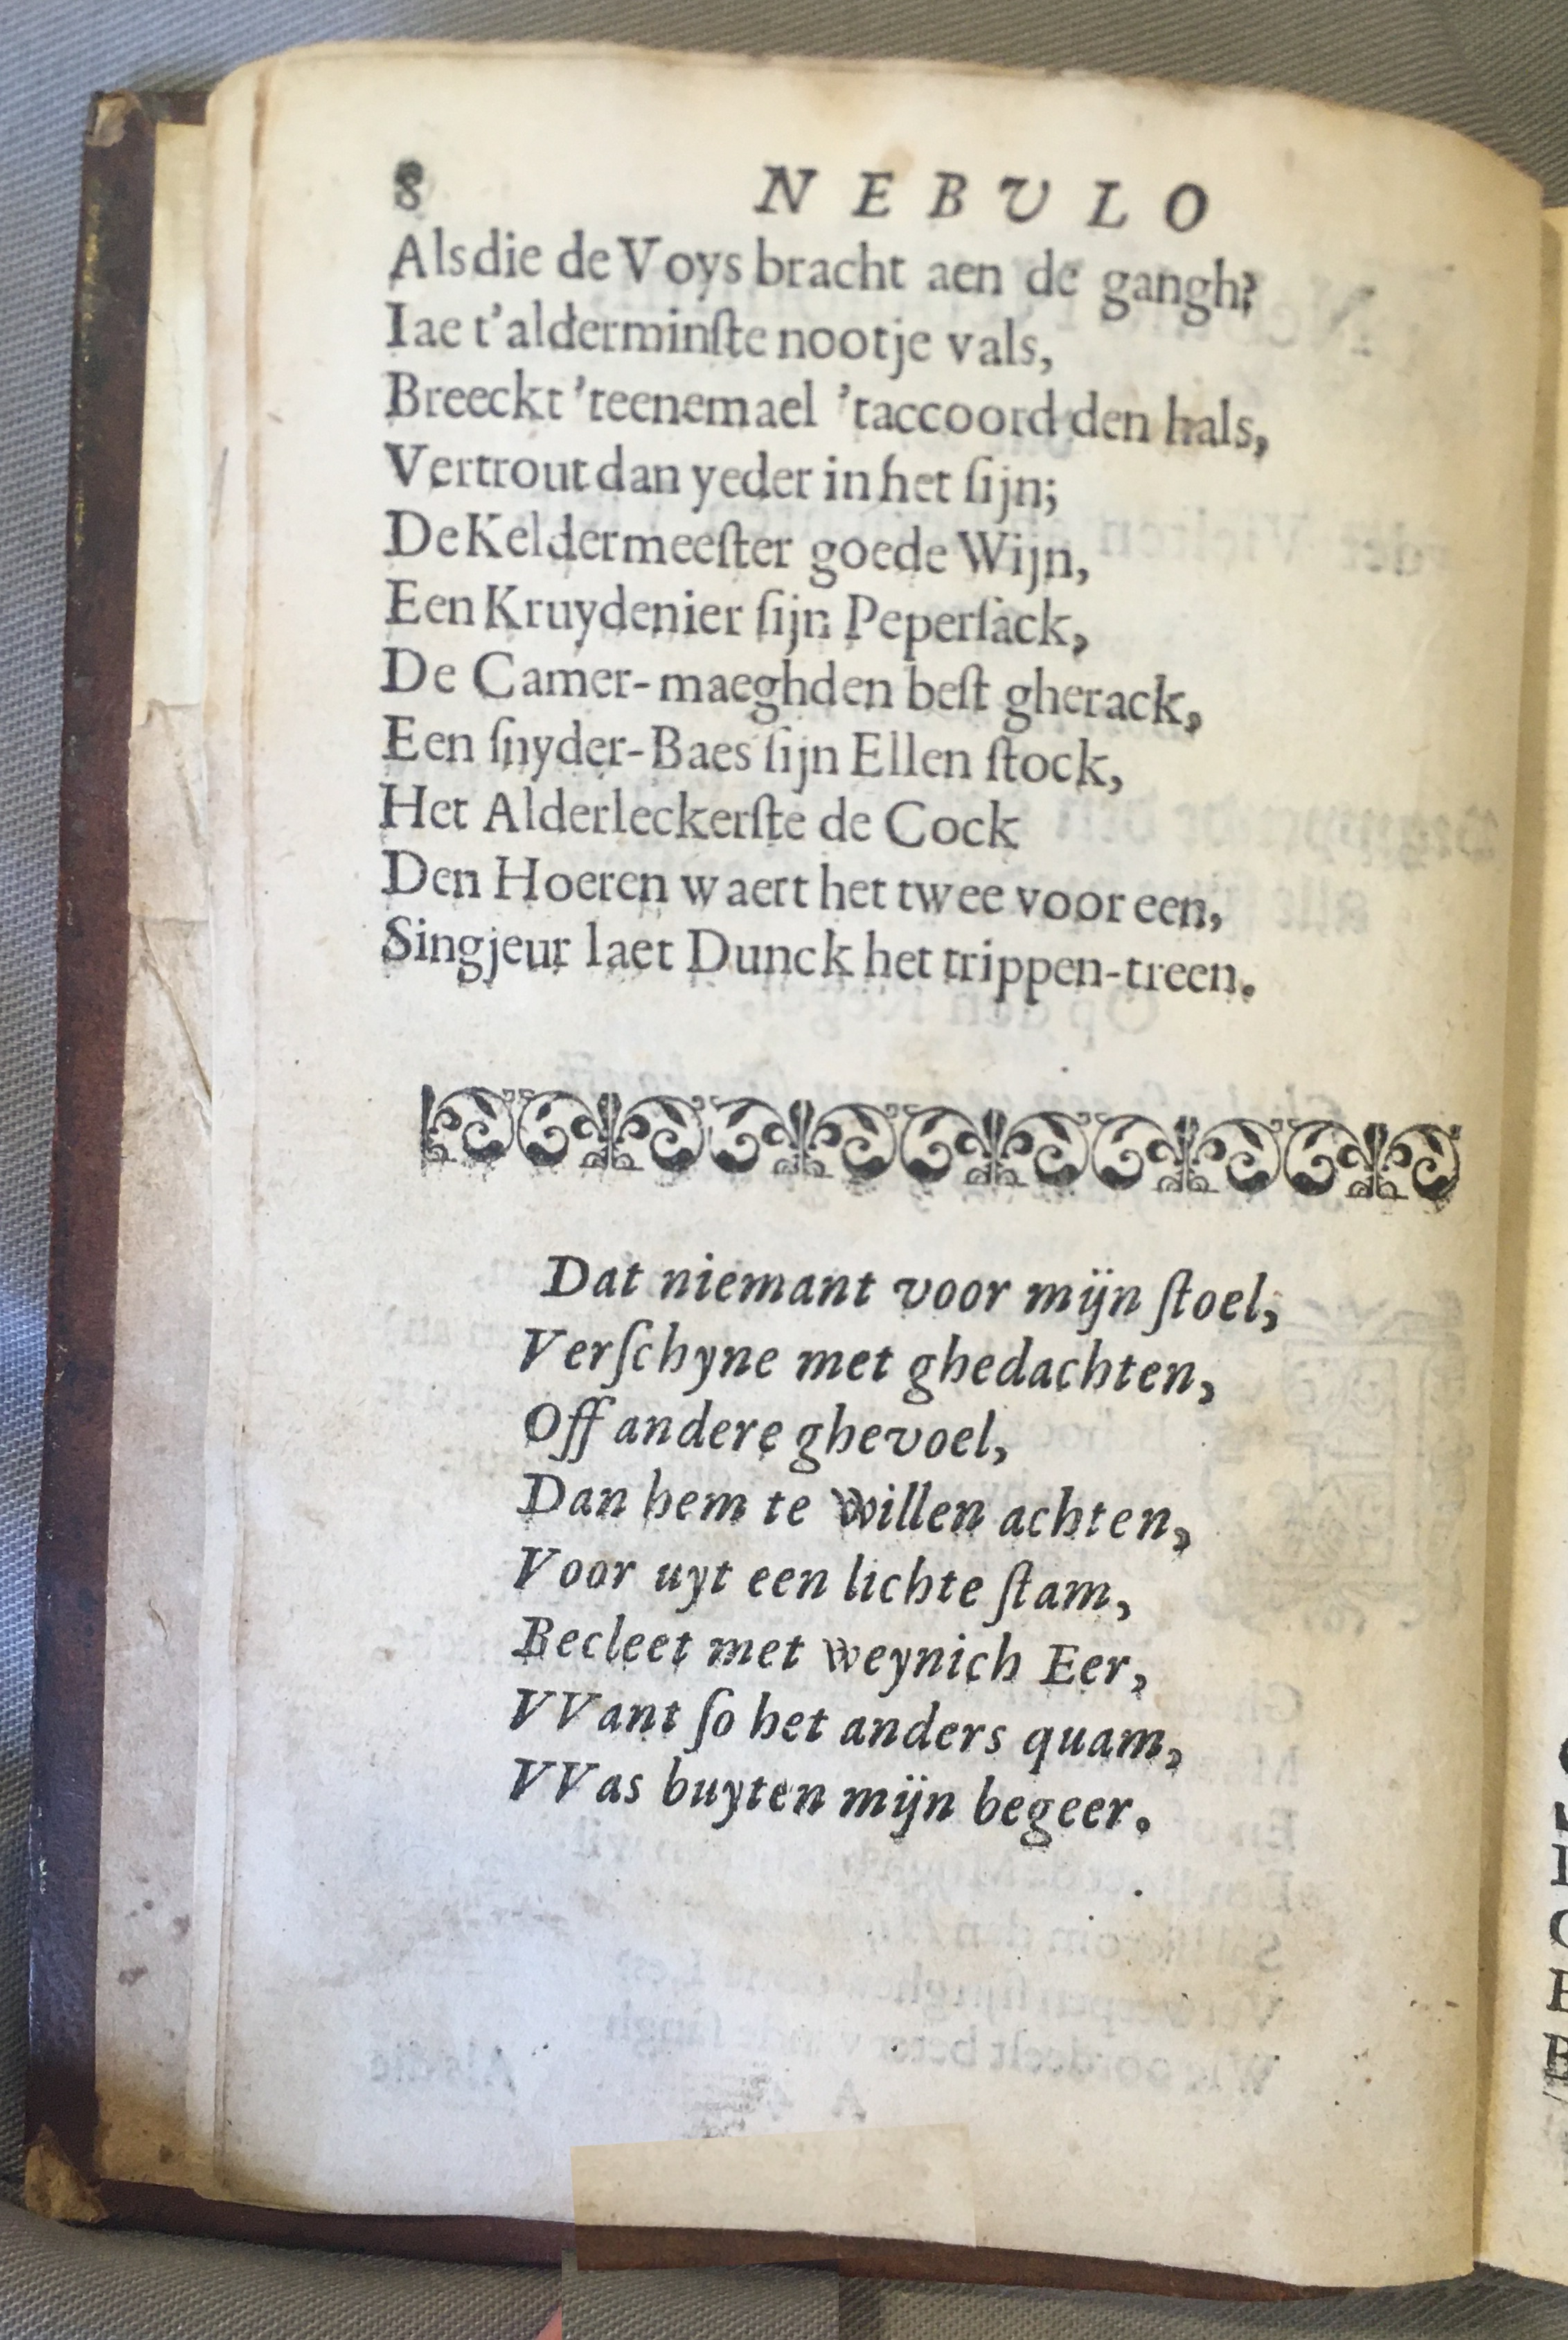 8 NEBVLO
Als die de Voys bracht aen de gangh?
Iae t'alderminſte nootje vals,
Breeckt 'teenemael 'taccoord den hals,
Vertrout dan yeder in het ſijn;
De Keldermeeſter goede Wijn,
Een Kruydenier ſijn Peperſack,
De Camer-maeghden beſt gherack,
Een ſnyder-Baes ſijn Ellen ſtock,
Het Alderleckerſte de Cock
Den Hoeren waert het twee voor een,
Singjeur laet Dunck het trippen-treen.
Dat niemant voor mijn ſtoel,
Verſchyne met ghedachten,
Off andere ghevoel,
Dan hem te willen achten,
Voor uyt een lichte ſtam,
Becleet met weynich Eer,
VVant ſo het anders quam,
VVas buyten mijn begeer.